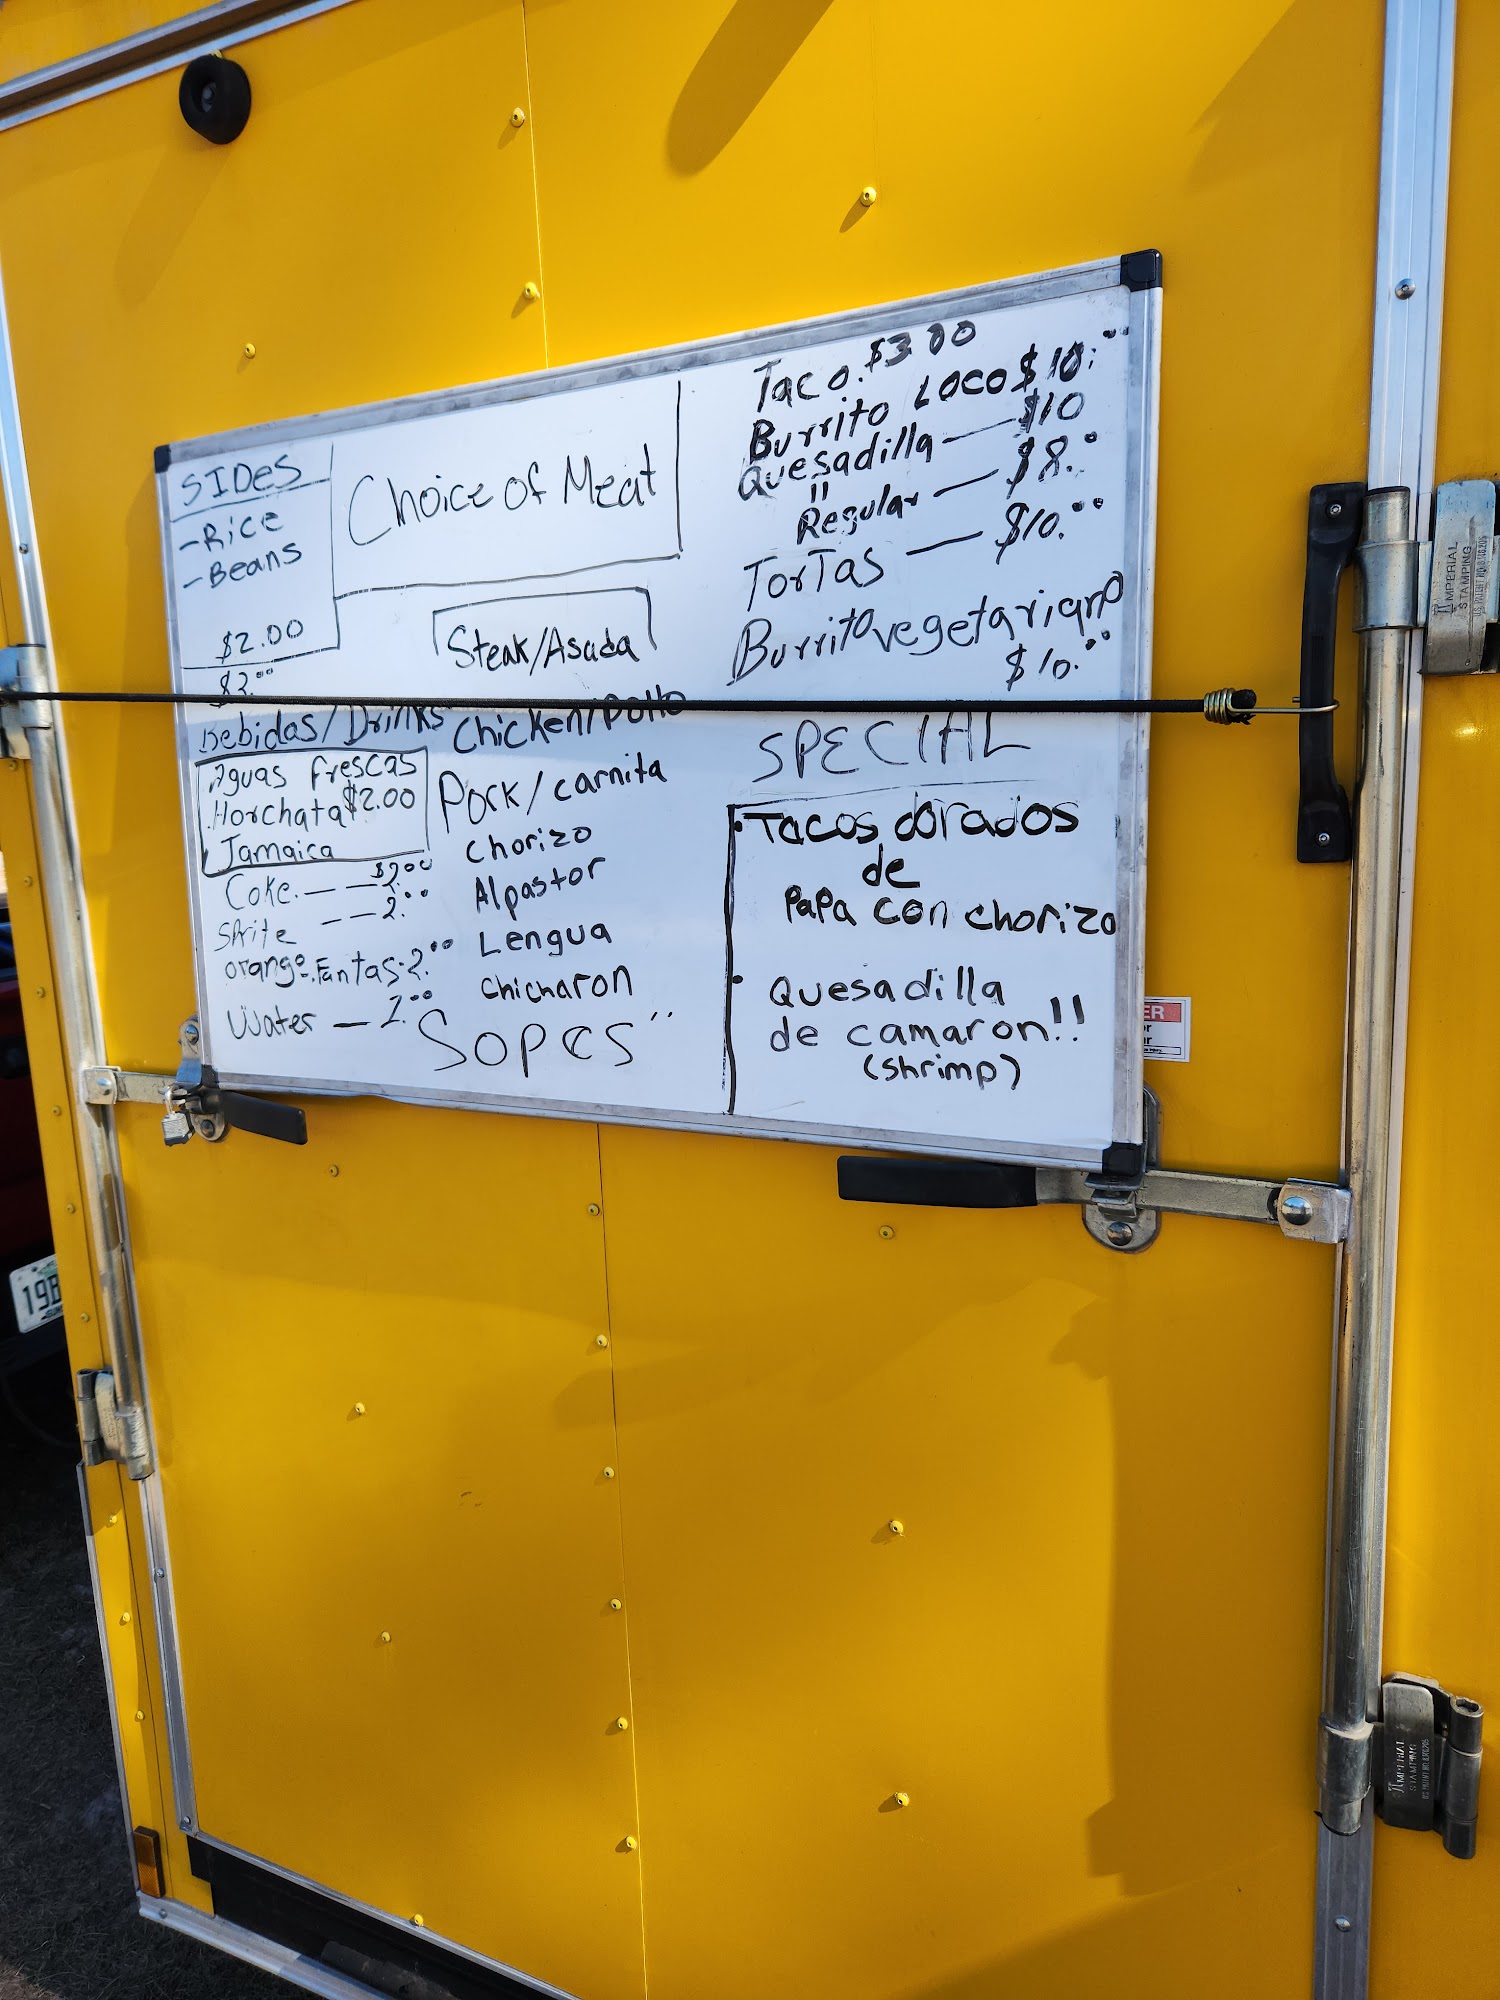 SIDES
-Rice
-Beans
$2.00
Bebidas/Drinks
Aguas frescas
Horchata $2.00
Jamaica
Coke. — — $2.00
Sprite — — 2.00
orange. Fantas. 2.00
Water — 1.00
Choice of Meat
Steak/Asada
Chicken/Pollo
Pork/carnita
Chorizo
Alpastor
Lengua
chicharon
Sopes"
Taco. $3.00
Burrito Loco $10.00
Quesadilla — $10
" Regular — $8.0
TorTas — $10.00
Burrito vegetariano
$10.00
SPECIAL
• Tacos dorados
de
PaPa con chorizo
• Quesadilla
de camaron!!
(shrimp)
19B
IMPERIAL
STAMPING
IMPERIAL
STAMPING